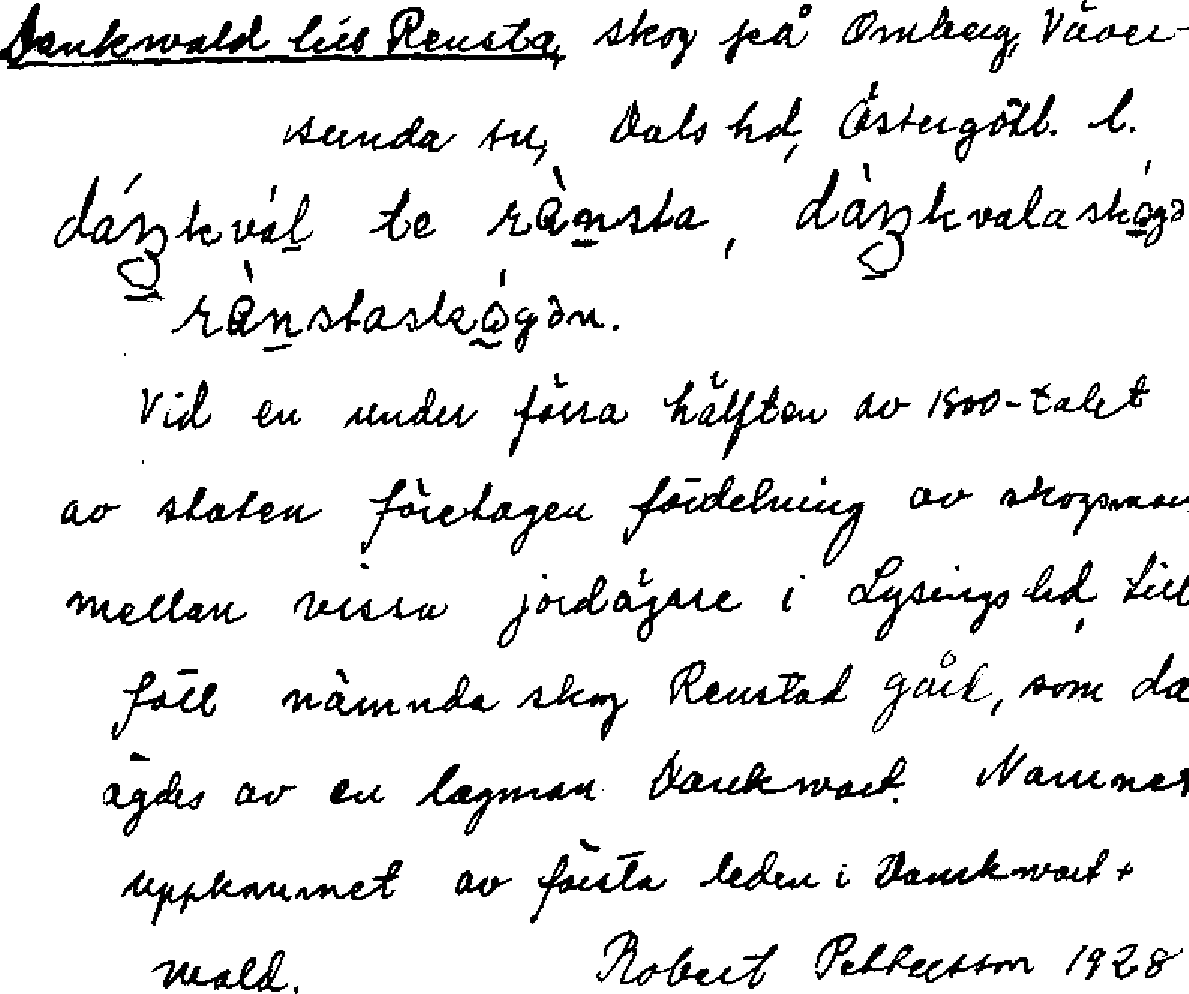 Dankwald till Rensta, skog på Omberg, Väver-
sunda sn, Dals hd, Östergötl. l.
dáŋkvàl te rànsta, dàŋkvalaskógə
rànstaskógən.
Vid en under förra hälften av 1800-talet
av staten företagen fördelning av skogsmar
mellan vissa jordägare i Lysings hd till
föll nämnda skog Renstad gård, som då
ägdes av en lagman Dankwart. Namnet
uppkommet av första leden i Dankwart +
wald. Robert Pettersson 1928